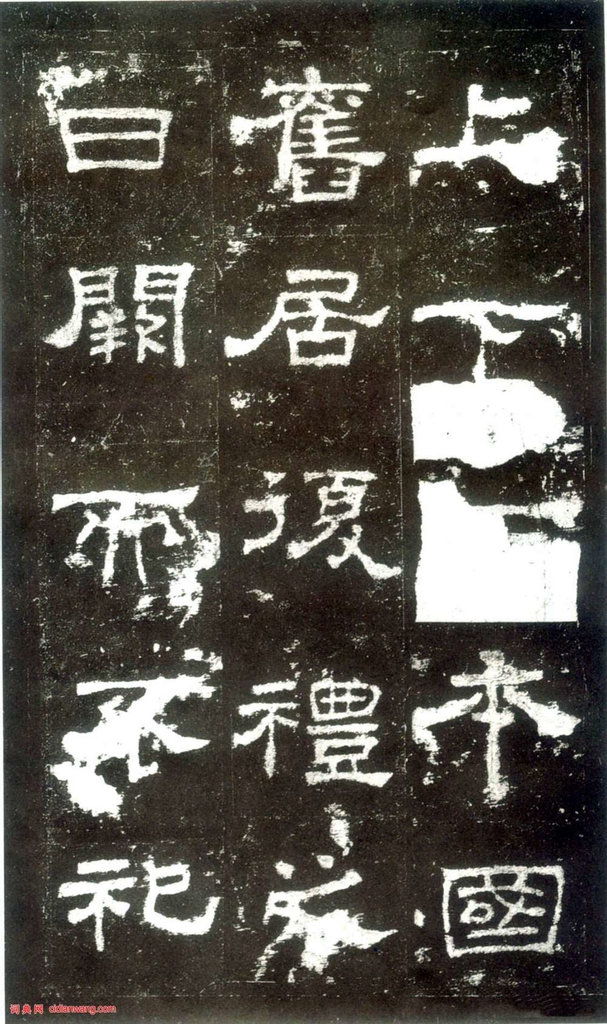 上下本國
舊居復禮之
日闕而不祀
词典网 cidianwang.com